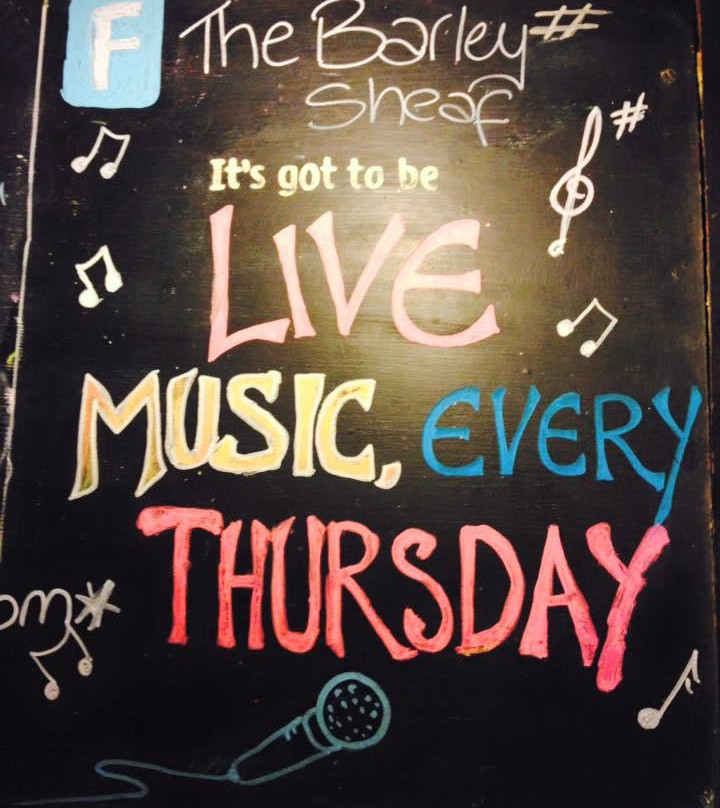 F The Barley #
Sheaf
#
It's got to be
LIVE
MUSIC, EVERY
THURSDAY
om*